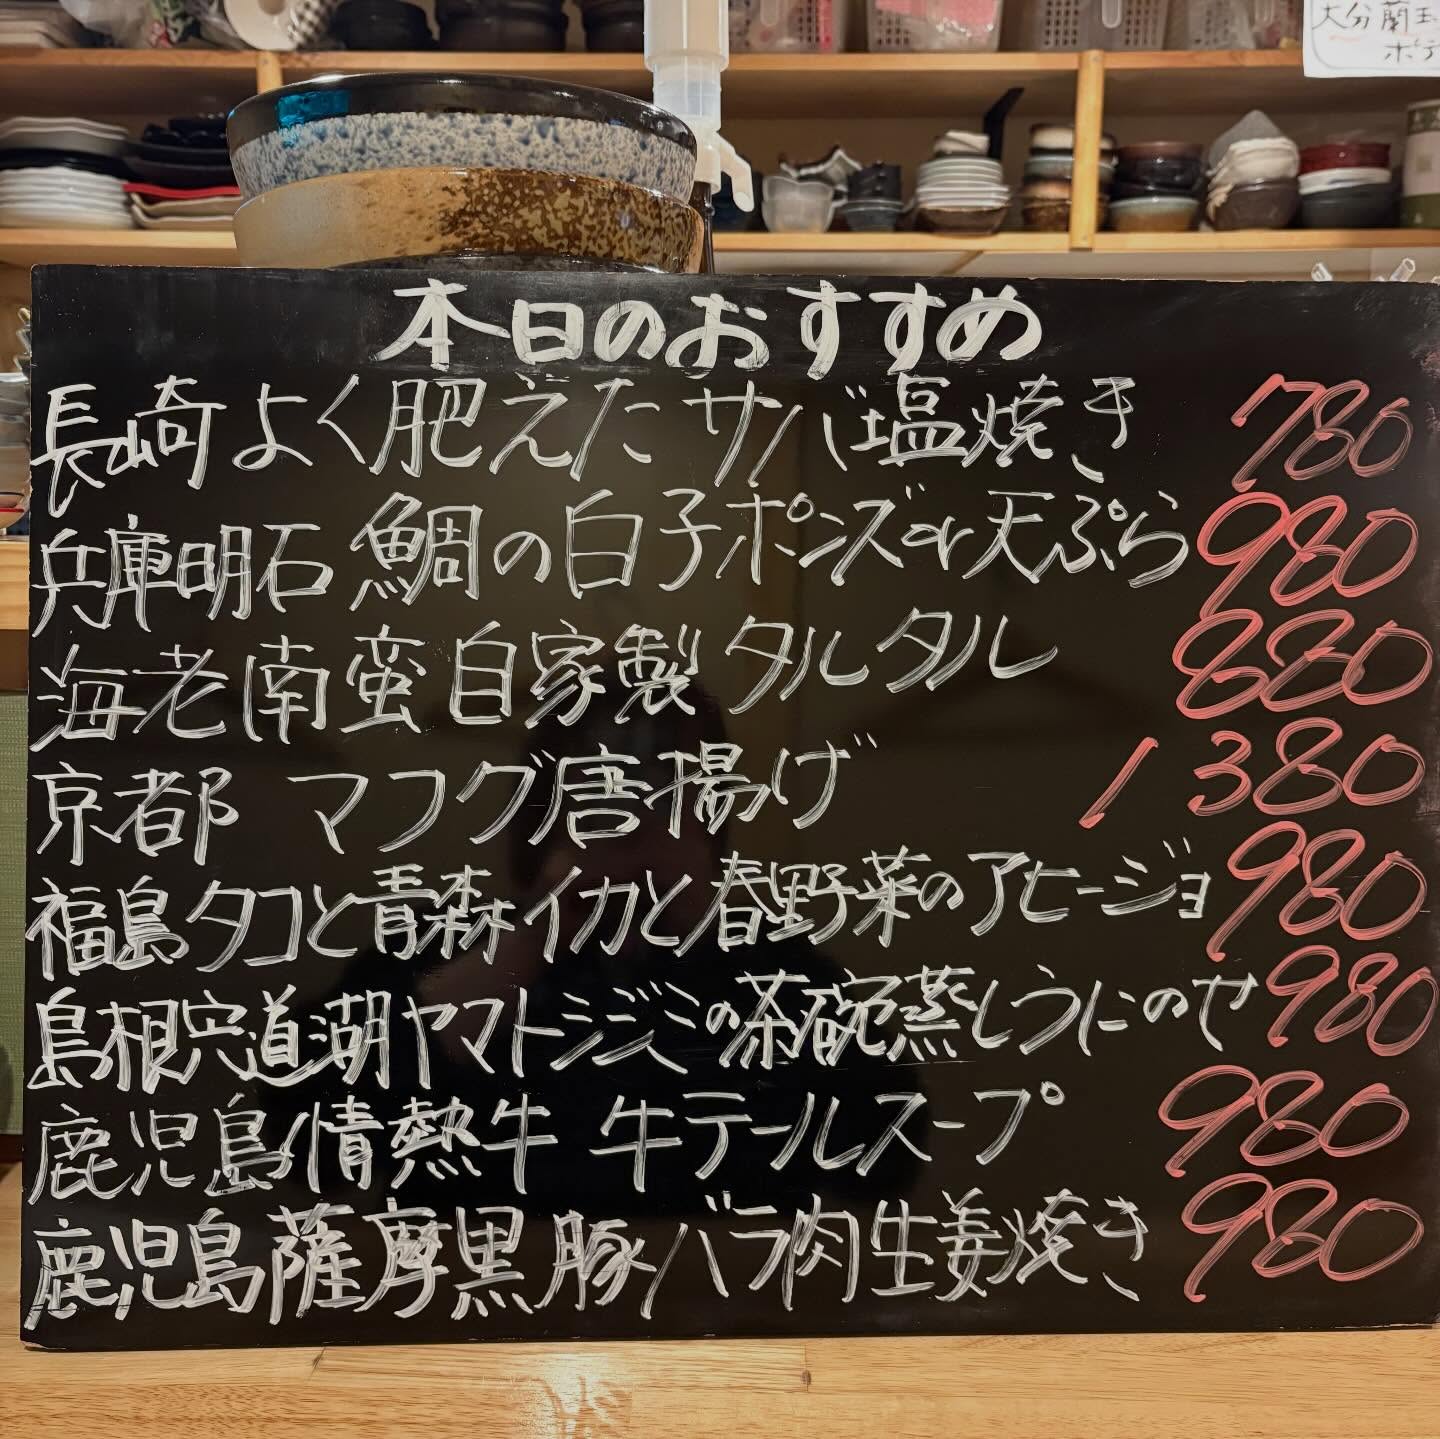 大分蘭王
ポテ
本日のおすすめ
長崎よく肥えたサバ塩焼き 780
兵庫明石 鯛の白子ポンズor天ぷら 980
海老南蛮自家製タルタル 880
京都 マフグ唐揚げ 1380
福島タコと青森イカと春野菜のアヒージョ 980
島根宍道湖ヤマトシジミの茶碗蒸しうにのせ 980
鹿児島情熱牛 牛テールスープ 980
鹿児島薩摩黒豚バラ肉生姜焼き 980